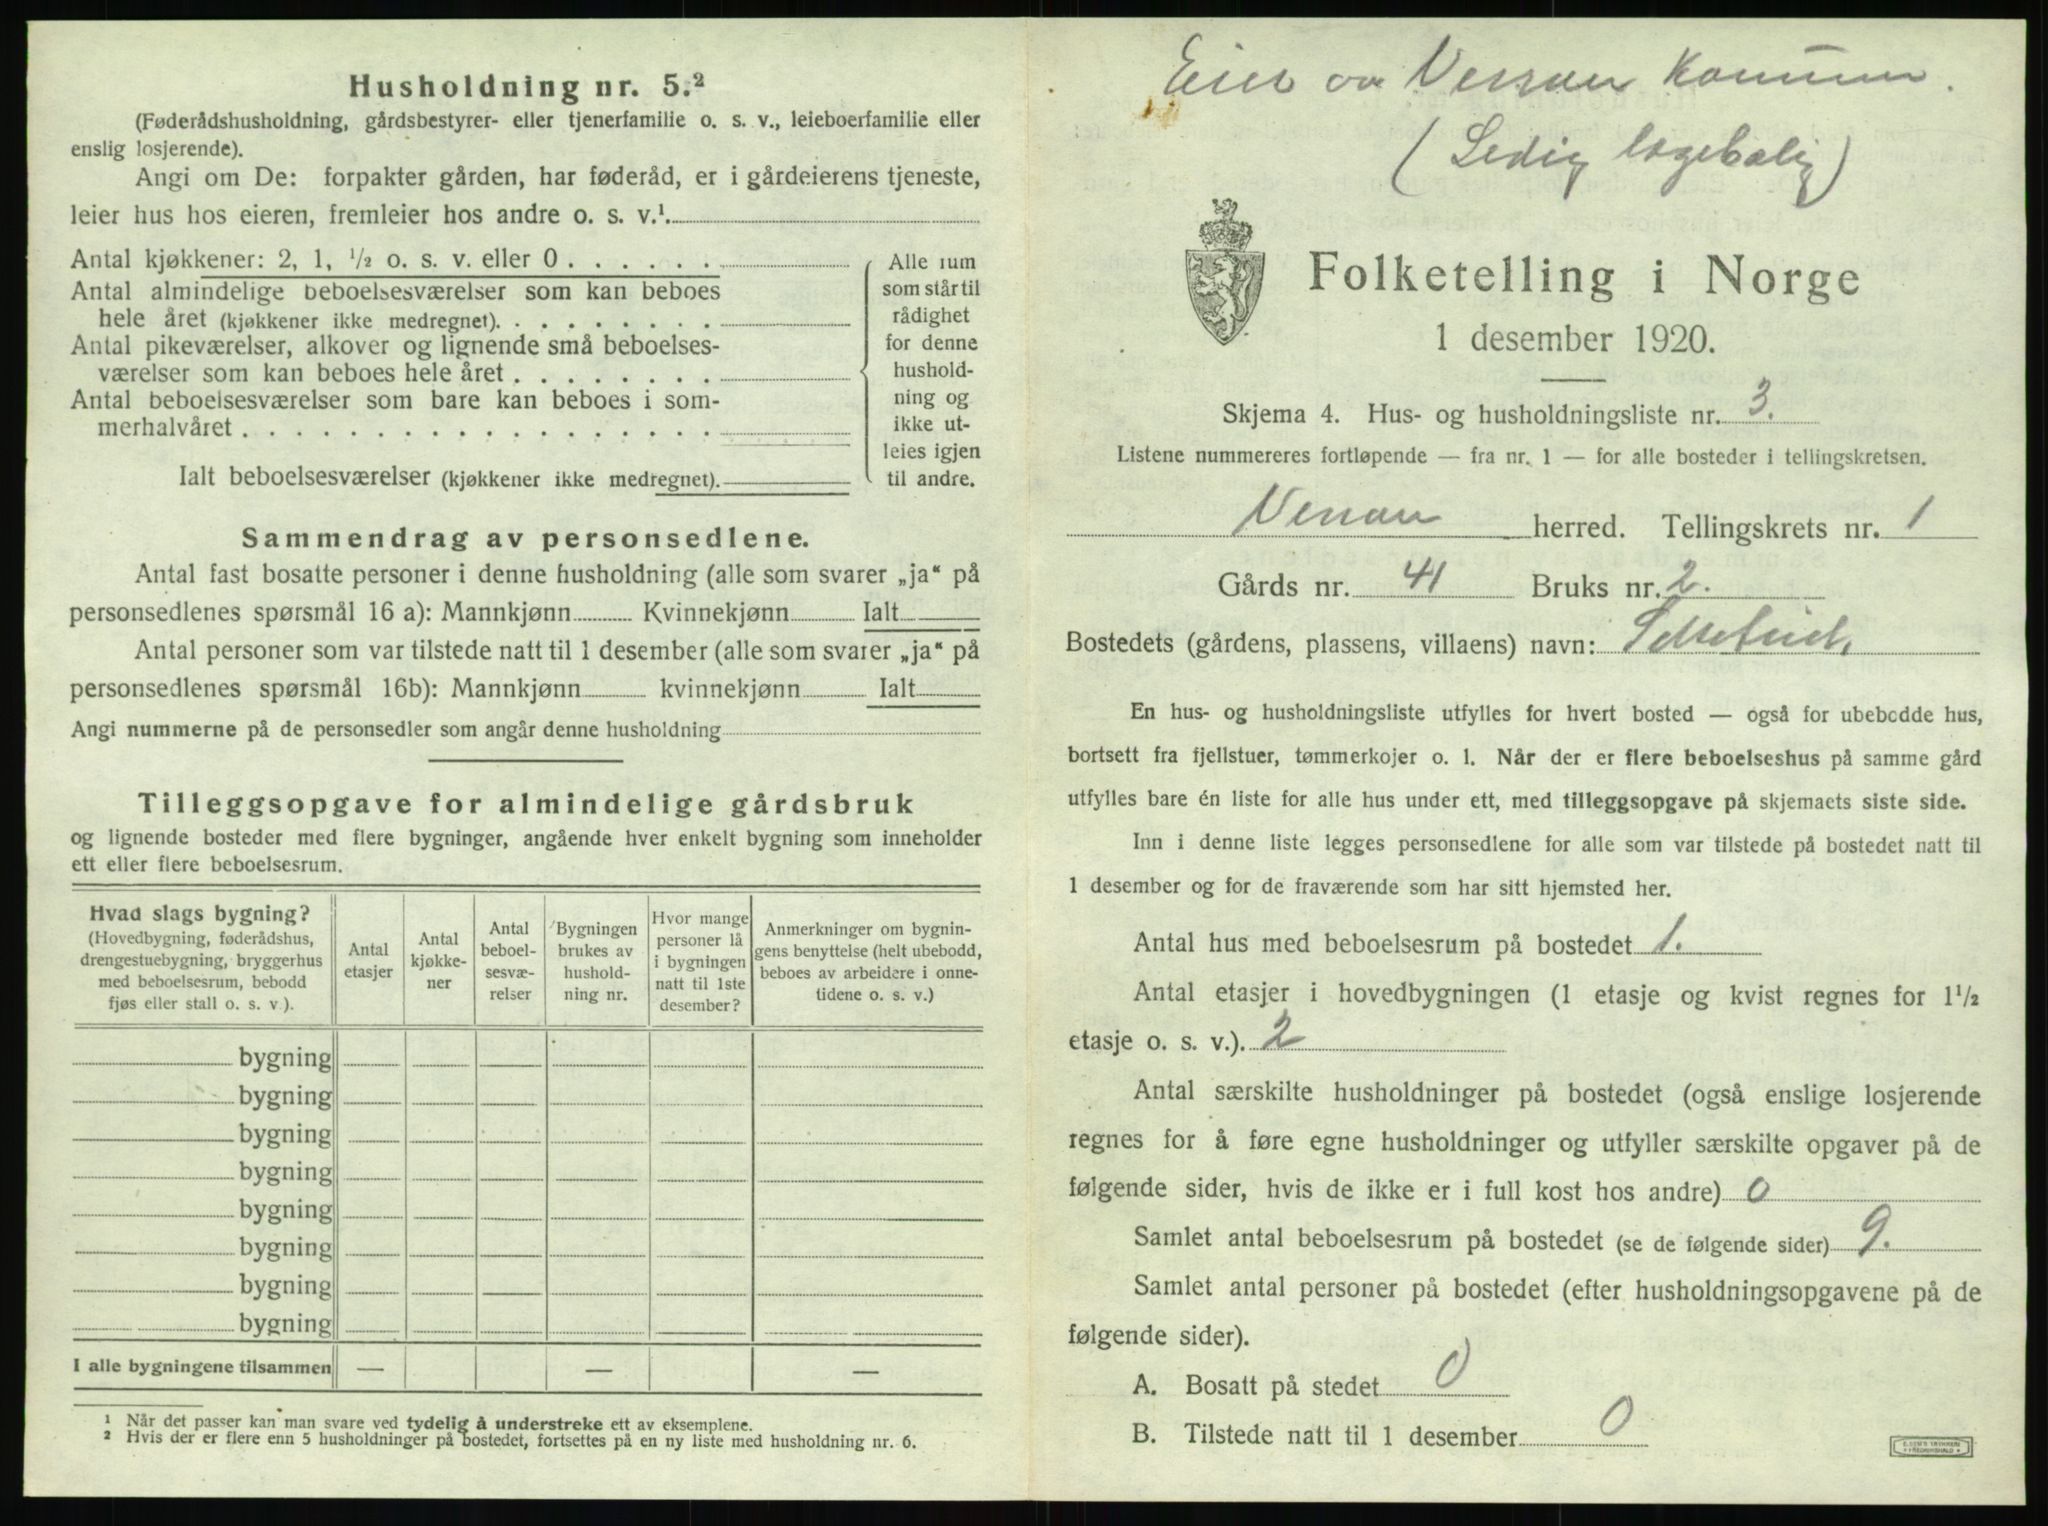 Husholdning nr. 5.²
(Føderådshusholdning, gårdsbestyrer- eller tjenerfamilie o. s. v., leieboerfamilie eller
enslig losjerende).
Angi om De: forpakter gården, har føderåd, er i gårdeierens tjeneste,
leier hus hos eieren, fremleier hos andre o. s. v.¹
Antal kjøkkener: 2, 1, ½ o. s. v. eller 0 . . . . . .
Antal almindelige beboelsesværelser som kan beboes
hele året (kjøkkener ikke medregnet). . . . . . . . .
Antal pikeværelser, alkover og lignende små beboelses-
værelser som kan beboes hele året . . . . . . . .
Antal beboelsesværelser som bare kan beboes i som-
merhalvåret . . . . . . . . . . . . . . . . . .
Ialt beboelsesværelser (kjøkkener ikke medregnet).
Alle rum
som står til
rådighet
for denne
hushold-
ning og
ikke ut-
leies igjen
til andre.
Sammendrag av personsedlene.
Antal fast bosatte personer i denne husholdning (alle som svarer „ja“ på
personsedlenes spørsmål 16 a): Mannkjønn Kvinnekjønn Ialt
Antal personer som var tilstede natt til 1 desember (alle som svarer „ja“ på
personsedlenes spørsmål 16b): Mannkjønn kvinnekjønn Ialt
Angi nummerne på de personsedler som angår denne husholdning
Tilleggsopgave for almindelige gårdsbruk
og lignende bosteder med flere bygninger, angående hver enkelt bygning som inneholder
ett eller flere beboelsesrum.
Hvad slags bygning?
(Hovedbygning, føderådshus,
drengestuebygning, bryggerhus
med beboelsesrum, bebodd
fjøs eller stall o. s. v.).
Antal
etasjer
Antal
kjøkke-
ner
Antal
beboel-
sesvæ-
relser
Bygningen
brukes av
hushold-
ning nr.
Hvor mange
personer lå
i bygningen
natt til 1ste
desember?
Anmerkninger om bygnin-
gens benyttelse (helt ubebodd,
beboes av arbeidere i onne-
tidene o. s. v.)
bygning
bygning
bygning
bygning
bygning
bygning
bygning
bygning
I alle bygningene tilsammen — — —
¹ Når det passer kan man svare ved tydelig å understreke ett av eksemplene.
² Hvis der er flere enn 5 husholdninger på bostedet, fortsettes på en ny liste med husholdning nr. 6.
Eier Verran
(Ledig lægebolig)
Folketelling i Norge
1 desember 1920.
Skjema 4. Hus- og husholdningsliste nr. 3.
Listene nummereres fortløpende — fra nr. 1 — for alle bosteder i tellingskretsen.
Verran herred. Tellingskrets nr. 1
Gårds nr. 41 Bruks nr. 2.
Bostedets (gårdens, plassens, villaens) navn:
En hus- og husholdningsliste utfylles for hvert bosted — også for ubebodde hus,
bortsett fra fjellstuer, tømmerkojer o. l. Når der er flere beboelseshus på samme gård
utfylles bare én liste for alle hus under ett, med tilleggsopgave på skjemaets siste side.
Inn i denne liste legges personsedlene for alle som var tilstede på bostedet natt til
1 desember og for de fraværende som har sitt hjemsted her.
Antal hus med beboelsesrum på bostedet 1.
Antal etasjer i hovedbygningen (1 etasje og kvist regnes for 1½
etasje o. s. v.). 2
Antal særskilte husholdninger på bostedet (også enslige losjerende
regnes for å føre egne husholdninger og utfyller særskilte opgaver på de
følgende sider, hvis de ikke er i full kost hos andre) 0
Samlet antal beboelsesrum på bostedet (se de følgende sider) 9.
Samlet antal personer på bostedet (efter husholdningsopgavene på de
følgende sider).
A. Bosatt på stedet 0
B. Tilstede natt til 1 desember 0